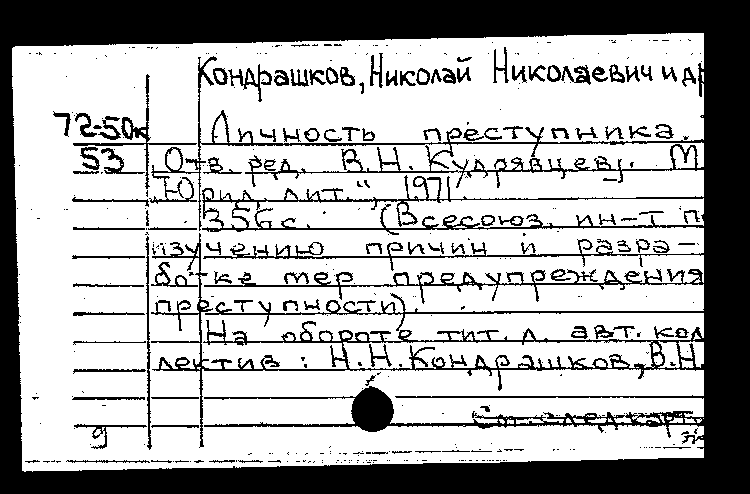 Кондрашков, Николай Николаевич и др
72-50к Личность преступника.
53 Отв. ред. В.Н. Кудрявцев. М
"Юрид. лит.", 1971.
356 с. (Всесоюз. ин-т п
изучению причин и разра-
ботке мер предупреждения
преступности).
На обороте тит. л. авт. кол
лектив: Н.Н. Кондрашков, В.Н.
См. след. карт
9